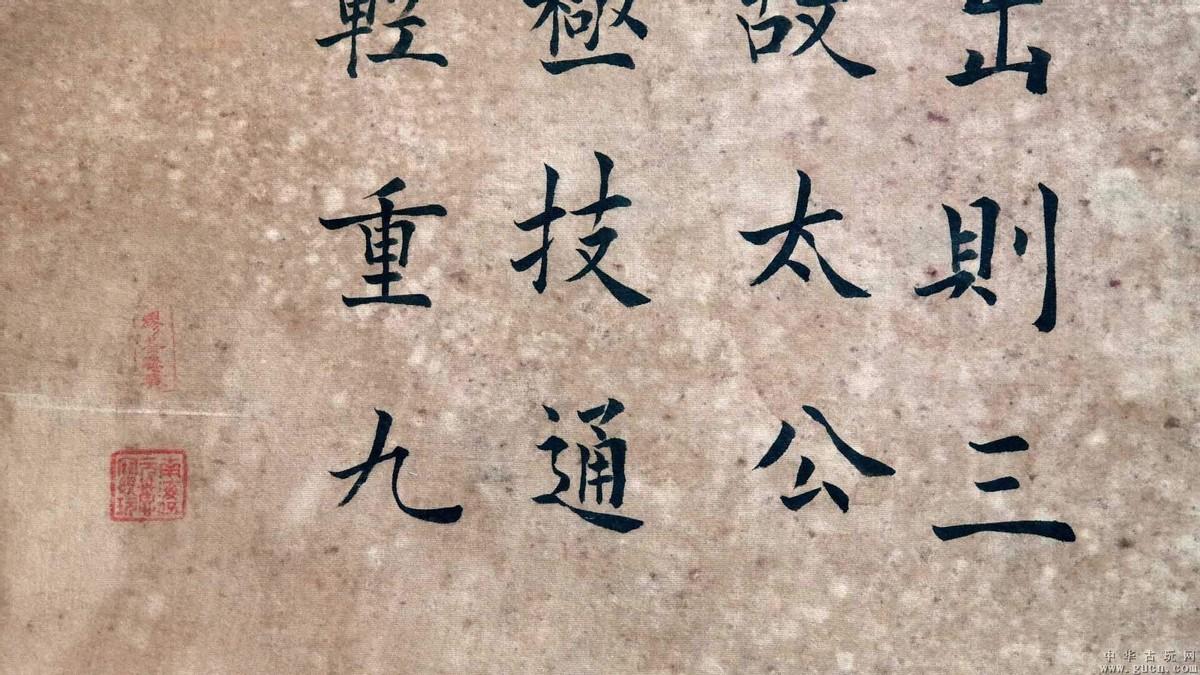 出則三
故太公
極技通
輕重九
中华古玩网
www.gucn.com